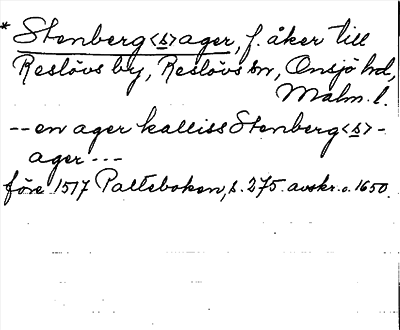 * Stenberg<s>ager, f. åker till
Reslövs by, Reslövs sn, Onsjö hd,
Malm. l.
-- en ager kalliss Stenberg<s>-
ager ---
före 1517 Palteboken, s. 275. avskr. c. 1650.